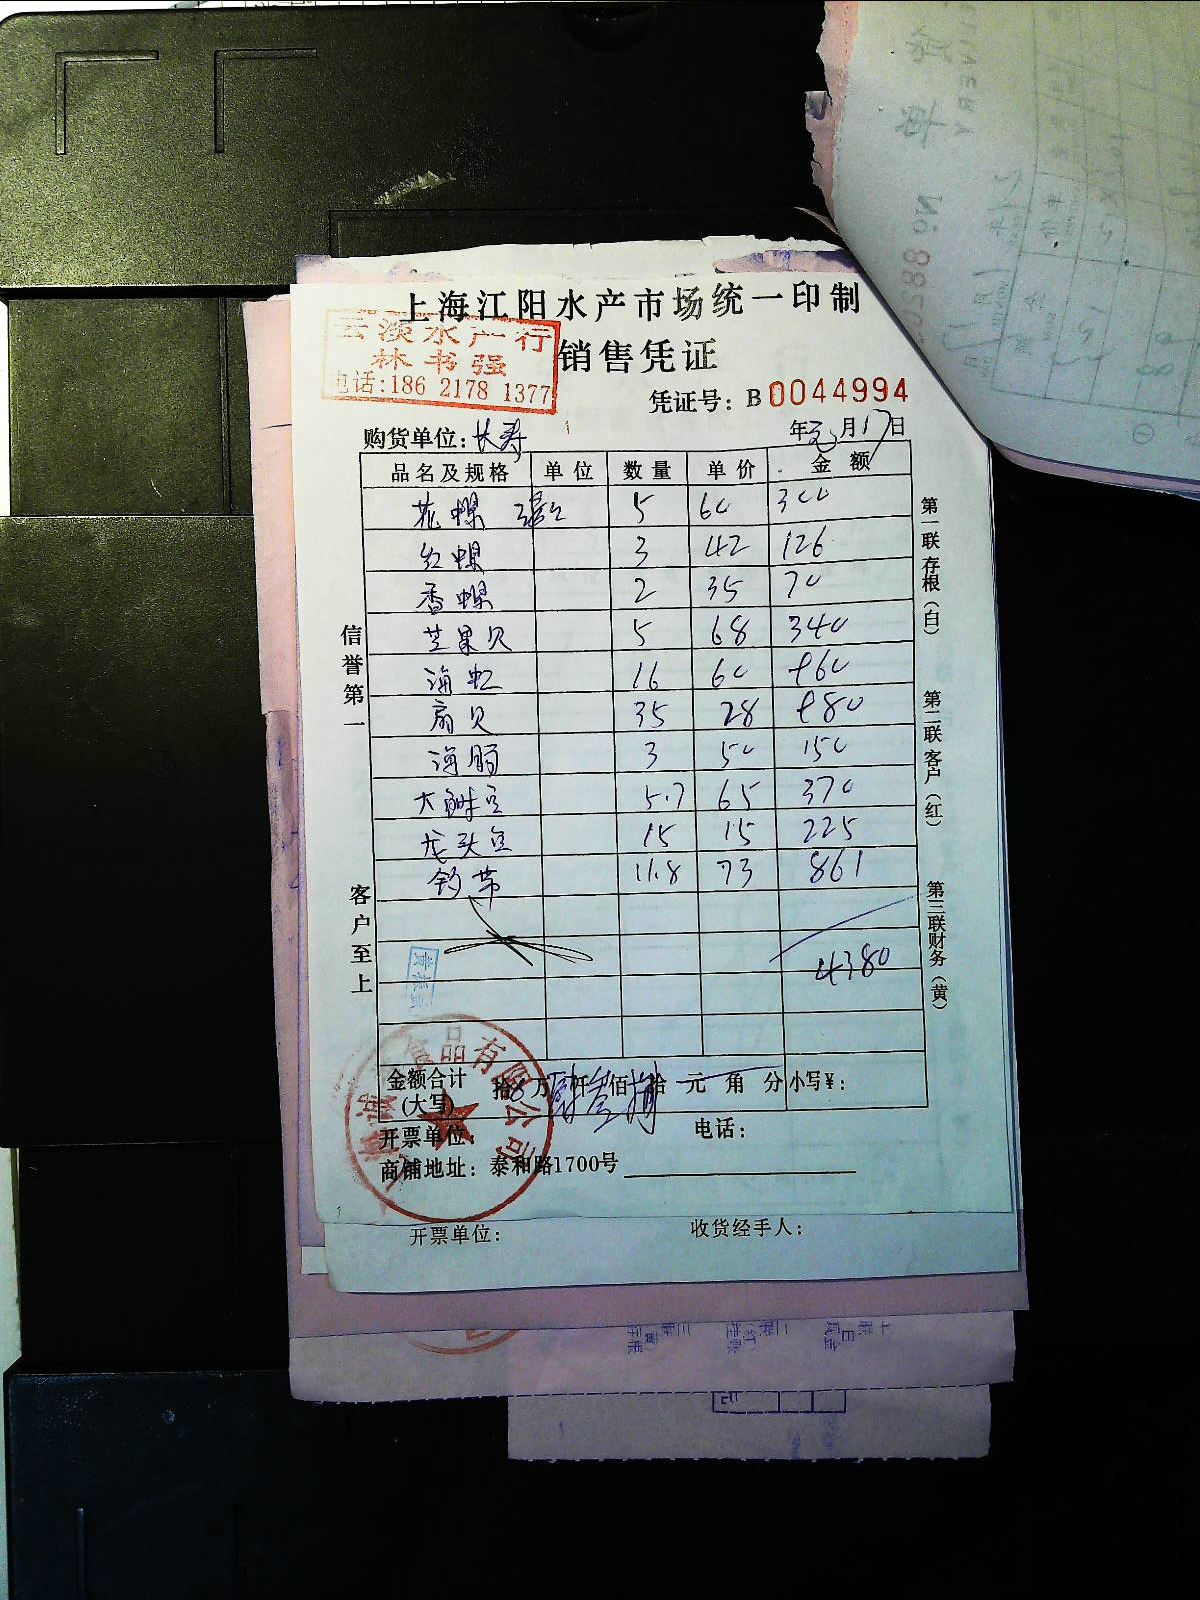 上海江阳水产市场统一印制
云淡水产行
林书强
电话:186 2178 1377
销售凭证
凭证号: B 0044994
购货单位: 长寿
年 月 17 日
品名及规格 单位 数量 单价 金额
花螺 5 60 300
红螺 3 42 126
香螺 2 35 70
芒果贝 5 68 340
海虹 16 60 960
扇贝 35 28 980
海肠 3 50 150
大 5.7 65 370
龙头 15 15 225
11.8 73 861
4380
信誉第一
客户至上
第一联存根(白)
第二联客户(红)
第三联财务(黄)
食品有限公司
金额合计(大写) 拾 万 肆 仟 叁 佰 捌 拾 元 角 分 小写¥:
开票单位:
电话:
商铺地址: 泰和路1700号
开票单位:
收货经手人: